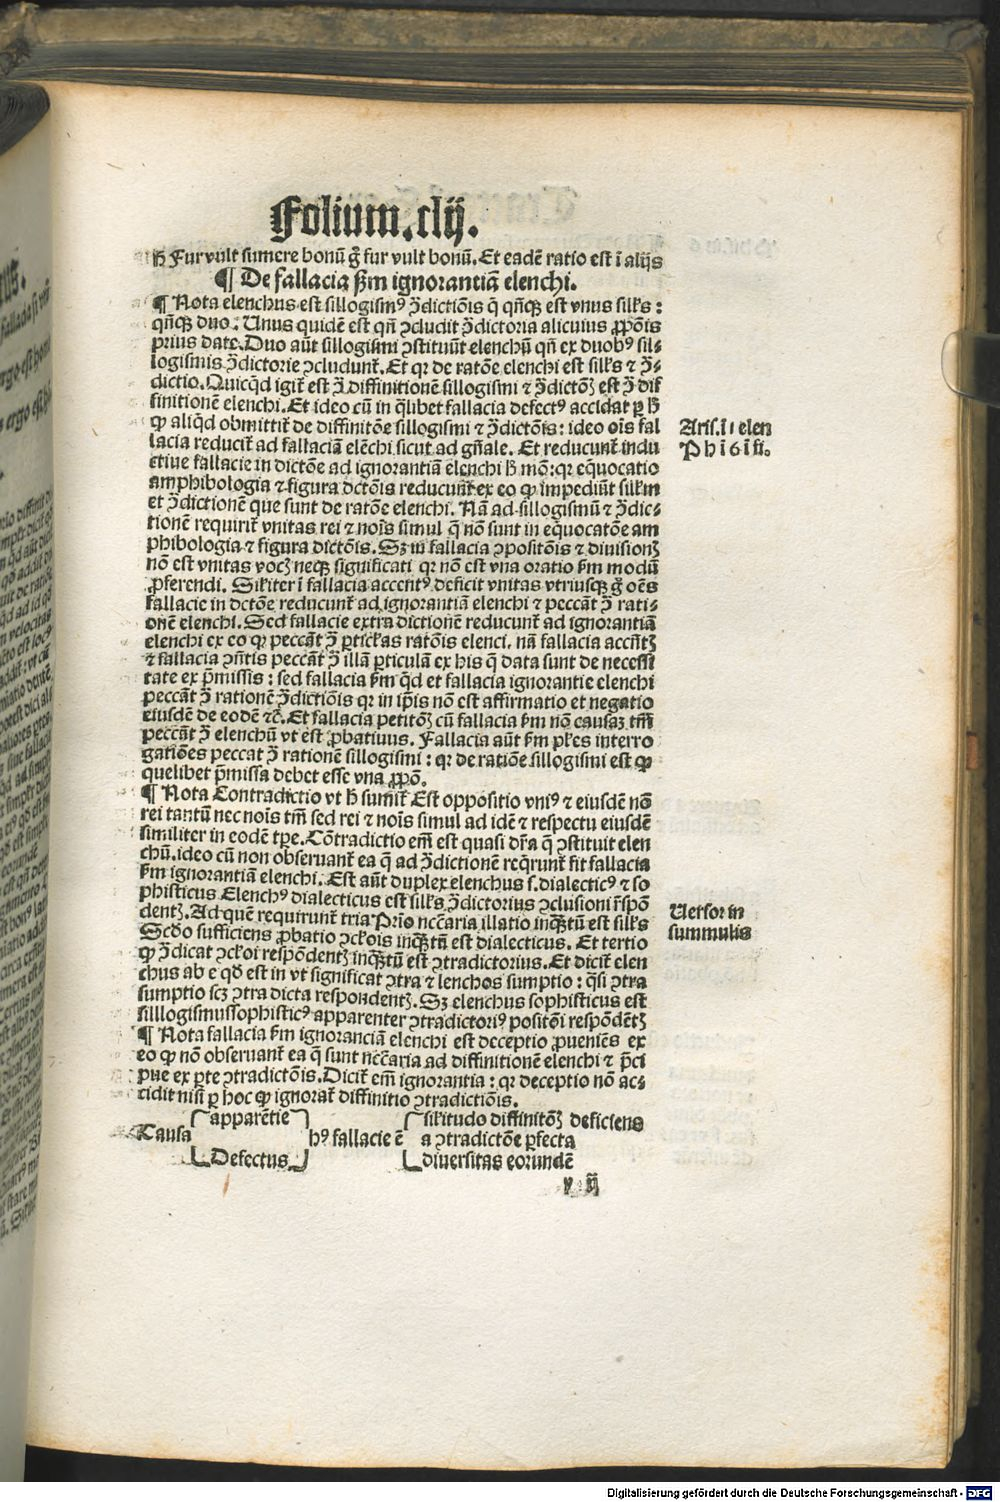 Folium.clij.
ħ Fur vult sumere bonū g̃ fur vult bonū. Et eadē ratio est ī alijs
¶ De fallacia ẜm ignorantiā elenchi.
¶ Nota elenchus est sillogismꝰ ↄ̃dictiōis q̄ qn̄qꝫ est vnus silło̅s :
qn̄qꝫ duo. Unus quidē est qn̄ ↄcludit ↄ̃dictoria alicuius ꝓpōis
prius date. Duo aūt sillogismi ↄstituūt elenchū qn̄ ex duobꝰ sil-
logismis ↄ̃dictorie ↄcludunt᷑. Et qꝛ de ratōe elenchi est silło̅s ⁊ ↄ̃-
dictio. Quicq̄d igit᷑ est ↄ̃ diffinitionē sillogismi ⁊ ↄ̃dictōꝫ est ↄ̃ dif
finitionē elenchi. Et ideo cū in q̄libet fallacia defectꝰ accidat ꝑ ħ
ꝙ aliq̄d obmittit᷑ de diffinitōe sillogismi ⁊ ↄ̃dictōis : ideo oīs fal
lacia reducit᷑ ad fallaciā elēchi sicut ad gn̄ale. Et reducunt᷑ indu
ctiue fallacie in dictōe ad ignorantiā elenchi ħ mō : qꝛ eq̄uocatio
amphibologia ⁊ figura dctōis reducunt᷑ ex eo ꝙ impediūt siłłm
et ↄ̃dictionē que sunt de ratōe elenchi. Nā ad sillogismū ⁊ ↄ̃dic-
tionē requirit᷑ vnitas rei ⁊ noīs simul q̄ nō sunt in eq̄uocatōe am
phibologia ⁊ figura dictōis. Sꝫ in fallacia ↄpositōis ⁊ diuisionꝫ
nō est vnitas vocꝫ neqꝫ significati qꝛ nō est vna oratio ẜm modū
ꝓferendi. Siłiter ī fallacia accentꝰ deficit vnitas vtriusqꝫ g̃ oēs
fallacie in dctōe reducunt᷑ ad ignorantiā elenchi ⁊ peccāt ↄ̃ rati-
onē elenchi. Sed fallacie extra dictionē reducunt᷑ ad ignorantiā
elenchi ex eo qꝛ peccāt ↄ̃ ꝑtickas ratōis elenci. nā fallacia accn̄tꝫ
⁊ fallacia ↄn̄tis peccāt ↄ̃ illā ꝑticulā ex his q̄ data sunt de necessi
tate ex p̄missis : sed fallacia ẜm q̄d et fallacia ignorantie elenchi
peccāt ↄ̃ rationē ↄ̃dictiōis qꝛ in ip̄is nō est affirmatio et negatio
eiusdē de eodē ⁊c̄. Et fallacia petitōꝫ cū fallacia ẜm nō causaꝫ tm̄
peccāt ↄ̃ elenchū vt est ꝓbatiuus. Fallacia aūt ẜm płes interro
gatiōes peccat ↄ̃ rationē sillogismi : qꝛ de ratiōe sillogismi est ꝙ
quelibet p̄missa debet esse vna ꝓpō.
¶ Nota Contradictio vt ħ sumit᷑ Est oppositio vniꝰ ⁊ eiusdē nō
rei tantū nec noīs tm̄ sed rei ⁊ noīs simul ad idē ⁊ respectu eiusdē
similiter in eodē tp̄e. Cōtradictio em̄ est quasi dr̄a q̄ ↄstituit elen
chū. ideo cū non obseruant᷑ ea q̄ ad ↄ̃dictionē req̄runt᷑ fit fallacia
ẜm ignorantiā elenchi. Est aūt duplex elenchus s. dialecticꝰ ⁊ so
phisticus Elenchꝰ dialecticus est silło̅s ↄ̃dictorius ↄclusioni r̄spō
dentꝫ. Ad quē requirunt᷑ tria Prīo nc̄cāria illatio inq̄ꝫtū est silło̅s
Scd̄o sufficiens ꝓbatio ↄckois inq̄ꝫtū est dialecticus. Et tertio
ꝙ ↄ̃dicat ↄckoi respōdentꝫ inq̄ꝫtū est ↄtradictorius. Et dicit᷑ elen
chus ab e qd̄ est in vt significat ↄtra ⁊ lenchos sumptio : q̄si ↄtra
sumptio scꝫ ↄtra dicta respondentꝫ. Sꝫ elenchus sophisticus est
silllogismussophisticꝰ apparenter ↄtradictoriꝰ positōi respōdētꝫ
¶ Nota fallacia ẜm ignoranciā elenchi est deceptio ꝓueniēs ex
eo ꝙ nō obseruant᷑ ea q̄ sunt nc̄cāria ad diffinitionē elenchi ⁊ p̄ci
pue ex ꝑte ↄtradictōis. Dicit᷑ em̄ ignorantia : qꝛ deceptio nō ac-
cidit nisi ꝑ hoc ꝙ ignorat᷑ diffinitio ↄtradictiōis.
Causa apparētie hꝰ fallacie ē siłitudo diffinitōꝫ deficiens
a ↄtradictōe ꝑfecta
Defectus diuersitas eorundē
v ij
Aris. ī ı elen
Ph ī 6 ī fi.
Uersor in
summulis
Digitalisierung gefördert durch die Deutsche Forschungsgemeinschaft - DFG